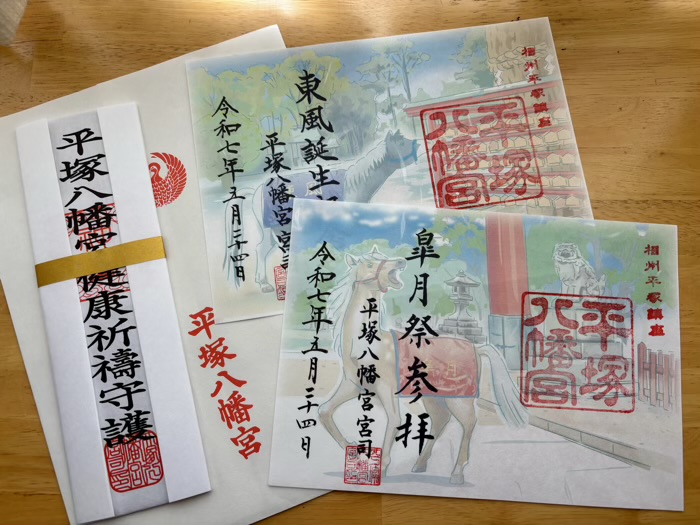 平塚八幡宮健康祈禱守護
平塚八幡宮
相州平塚鎮座
平塚
八幡宮
東風誕生
平塚八幡宮宮司
令和七年五月二十四日
相州平塚鎮座
平塚
八幡宮
皐月祭参拝
平塚八幡宮宮司
令和七年五月二十四日